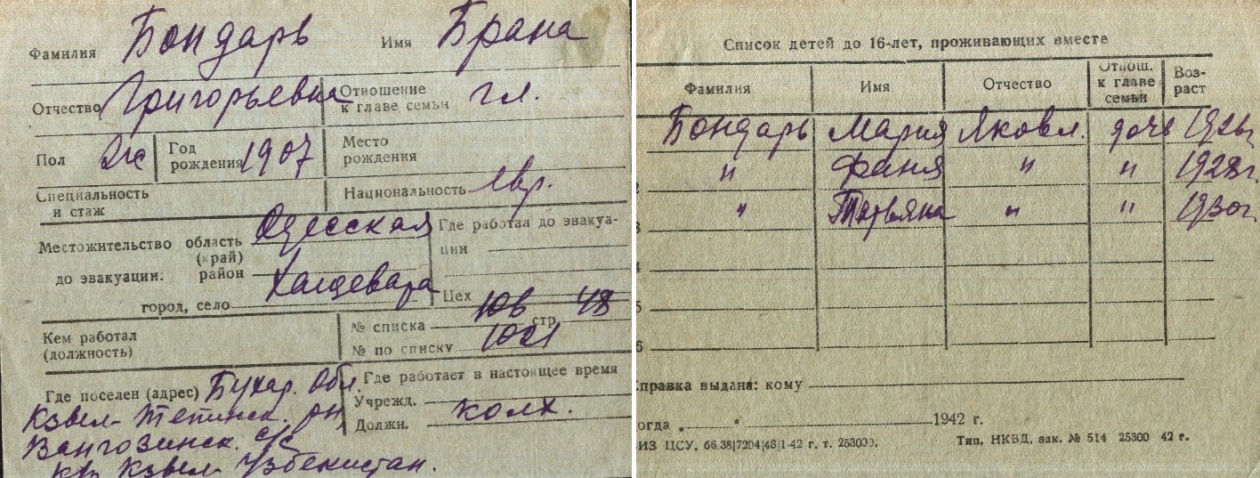 Фамилия Бондарь Имя Брана
Отчество Григорьевна Отношение к главе семьи гл.
Пол ж Год рождения 1907 Место рождения
Специальность и стаж Национальность евр.
Местожительство область (край) Одесская Где работал до эвакуации
до эвакуации: район
город, село Хащевата Цех
№ списка 10в стр. 48
Кем работал (должность) № по списку 1021
Где поселен (адрес) Бухар. Обл. Где работает в настоящее время
Кзыл-Тепинск. рн Учрежд.
Вангозинск. с/с Должн. колх.
Кзыл Узбекистан.
Список детей до 16-лет, проживающих вместе
Фамилия Имя Отчество Отнош. к главе семьи Возраст
Бондарь Мария Яковл. дочь 1926г.
" Фаня " " 1928г.
2
" Татьяна " " 1930г.
3
4
5
6
правка выдана: кому
огда „ " 1942 г.
ИЗ ЦСУ, 66.38|7204|48|1-42 г. т. 253000. Тип. НКВД, зак. № 514 25300 42 г.